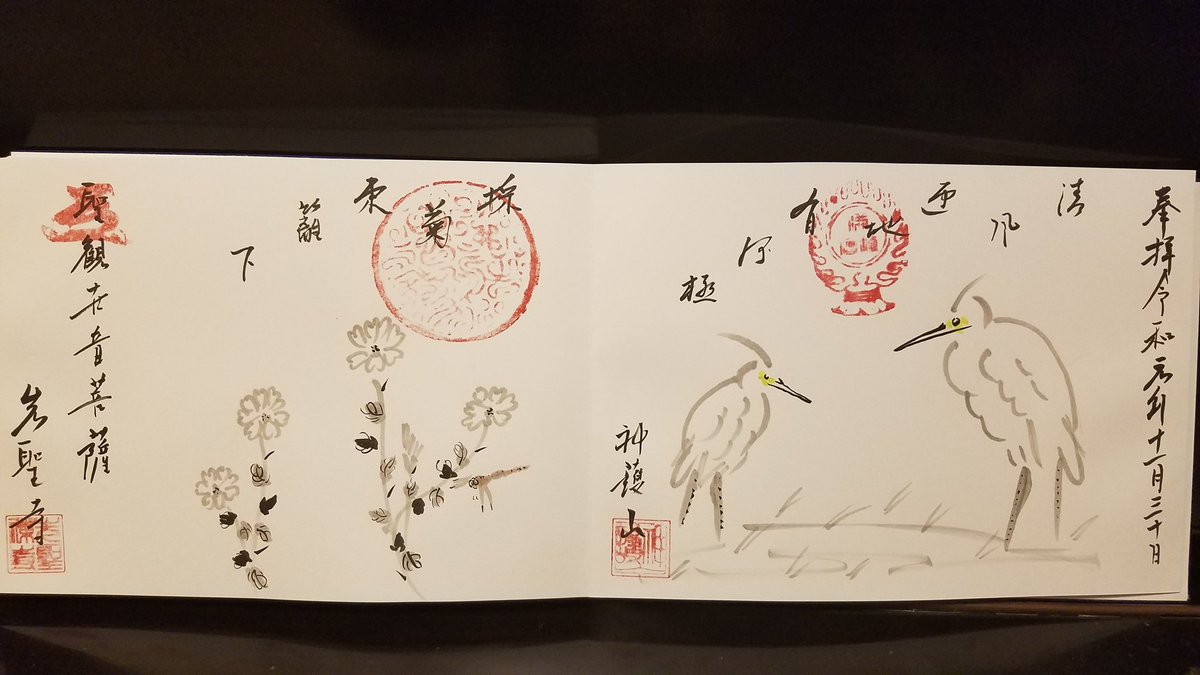 奉拝令和元年十一月三十日
清風匝地有何極
神護山
採菊東籬下
聖観世音菩薩
先聖寺